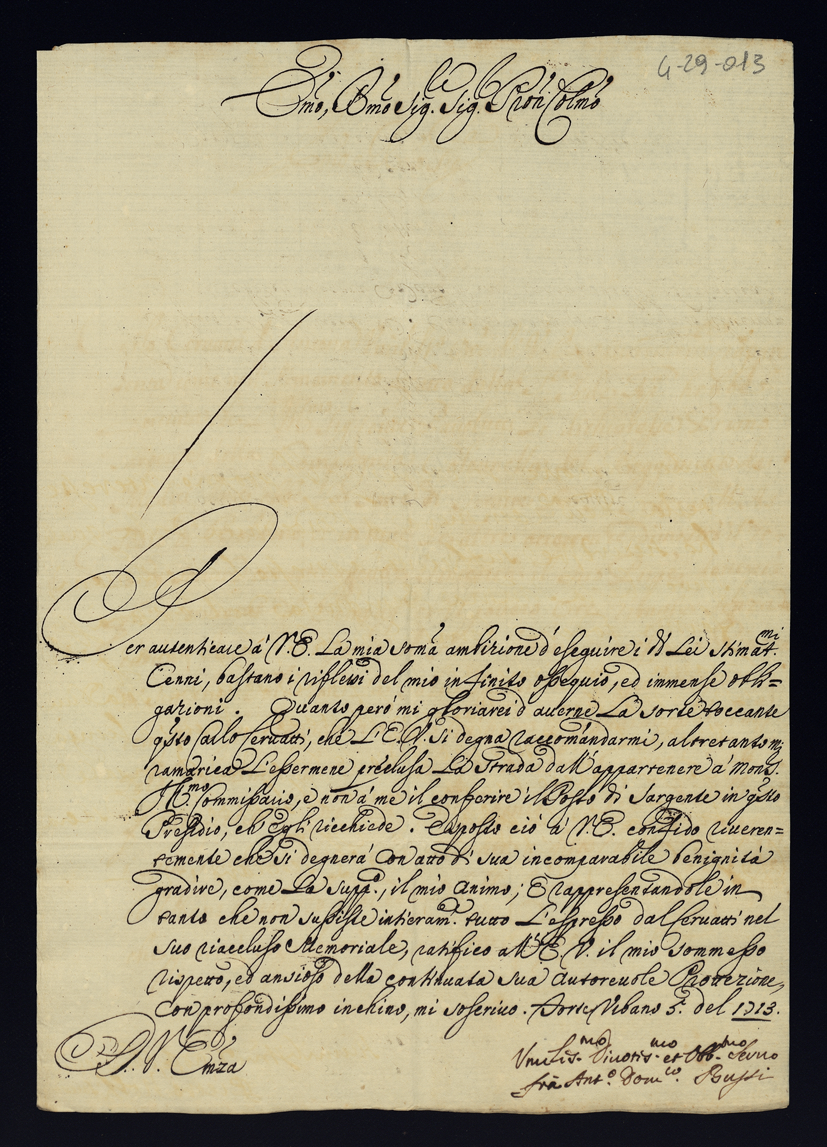 4-29-013
Emo, Rmo Sig.r Sig.r Pron Colmo
Per autenticare à V.E. La mia somã ambitione d'eseguire i di Lei stimat.mi
Cenni, bastano i riflessi del mio infinito ossequio, ed immense obli=
gazioni. Quanto però mi gloriarei d'auerne La sorte toccante
q̃sto Carlo Seruatti, che L'E.V. si degna raccomandarmi, altretanto mi
ramarica L'essermene preclusa La Strada dall'appartenere à Mons.
Commissario, e non à me il conferire il Posto di Sargente in q̃sto
Presidio, ch'Egli ricchiede. Esposto ciò à V.E. confido riueren=
temente che si degnerà con atto di sua incomparabile benignità
gradire, come La supp.o, il mio animo; E rappresentandole in
tanto che non sussiste intieram.e tutto L'espresso dal Seruatti nel
suo riaccluso Memoriale, ratifico all'E.V. il mio sommesso
rispetto, ed ansioso della continuata sua autoreuole Protezione,
con profondissimo inchino, mi soscriuo. Forte Vrbano del 1713.
D. V. Emza
Vmilis.mo Diuotis.mo et Obb.mo Seruo
frà Ant.o Dom.co Bussi